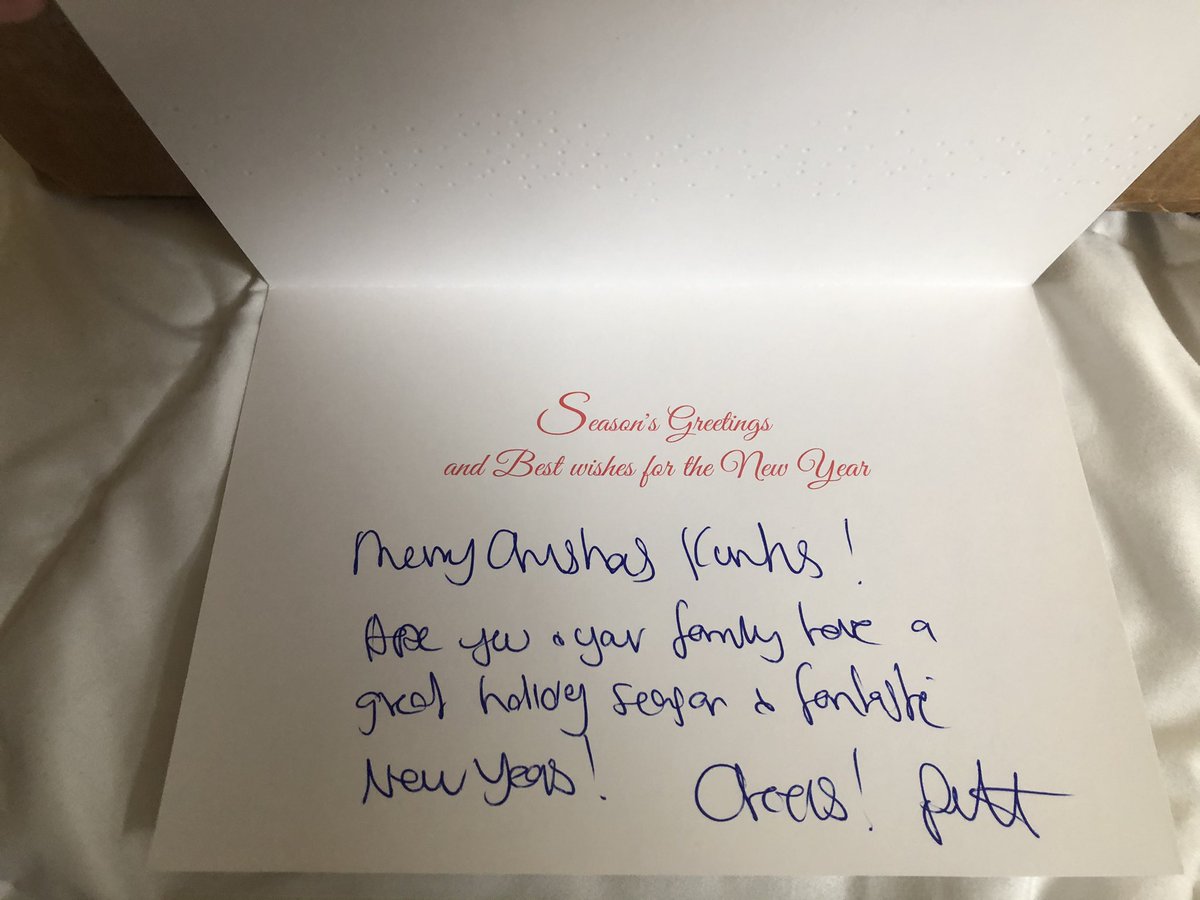 Season's Greetings
and Best wishes for the New Year
Merry Christmas !
Hope you & your family have a
great holiday season & fantastic
New Years!
Cheers!